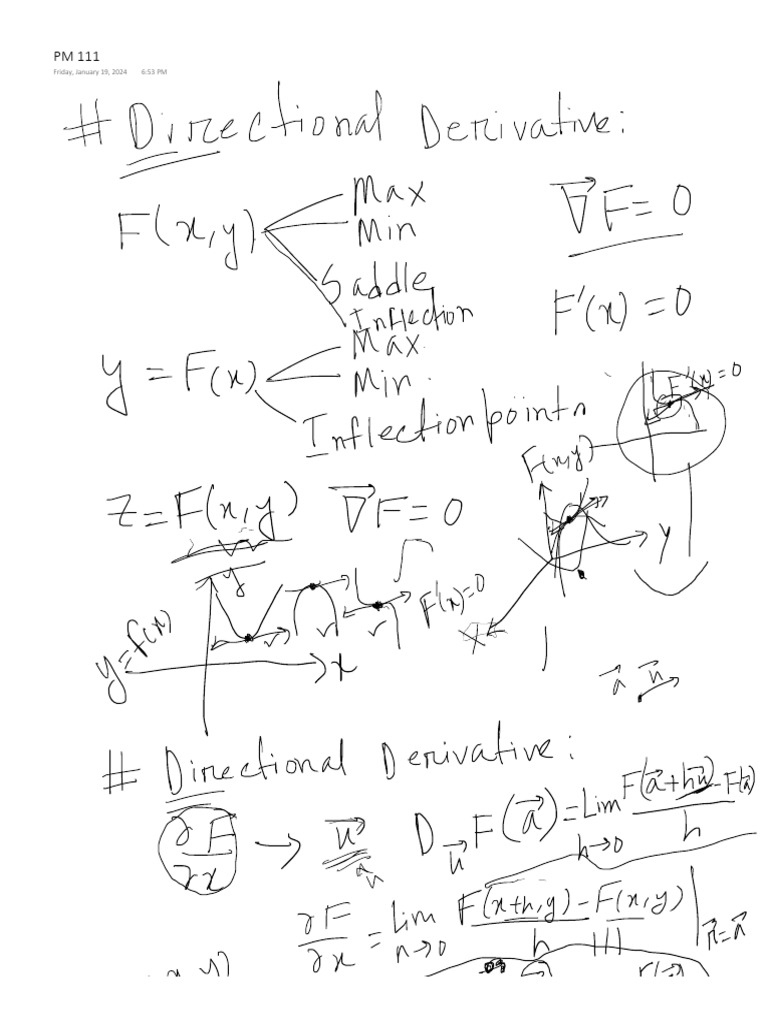 PM 111
Friday, January 19, 2024 6:53 PM
# Directional Derivative:
F(x,y) Max
Min
Saddle
Inflection
∇F = 0
F'(x) = 0
y = F(x) Max
Min
Inflection point
F'(x) = 0
F(x,y)
Z = F(x,y) ∇F = 0
y
x
y
X
y = f(x)
F'(x) = 0
x
a⃗ u⃗
# Directional Derivative:
∂F/∂x → u⃗ D_u⃗ F(a⃗) = Lim h→0 (F(a⃗+hu⃗) - F(a⃗))/h
∂F/∂x = Lim h→0 (F(x+h,y) - F(x,y))/h